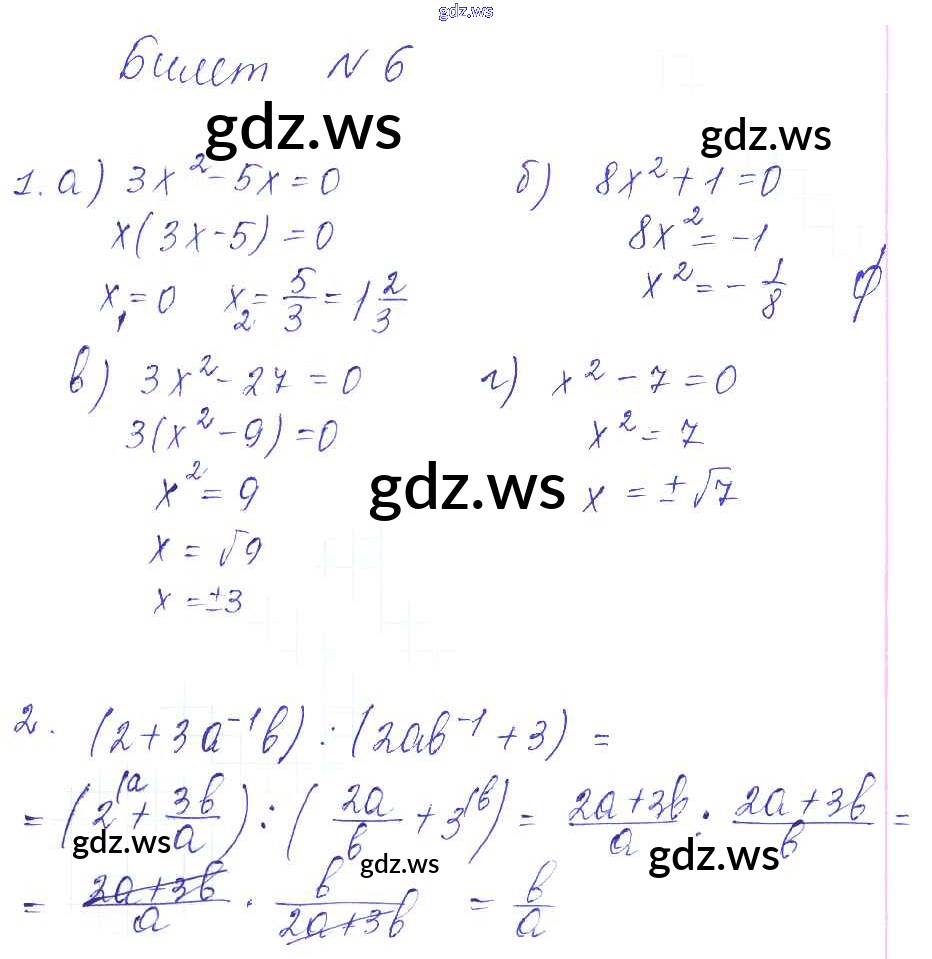 gdz.ws
Билет N 6
gdz.ws
gdz.ws
1. а) 3x² - 5x = 0
x(3x - 5) = 0
x₁ = 0 x₂ = 5/3 = 1 2/3
б) 8x² + 1 = 0
8x² = -1
x² = -1/8 ∅
в) 3x² - 27 = 0
3(x² - 9) = 0
x² = 9
x = √9
x = ±3
г) x² - 7 = 0
x² = 7
x = ±√7
gdz.ws
2. (2 + 3a⁻¹b) : (2ab⁻¹ + 3) =
= (2^(a + 3b/a) : (2a/b + 3^(b) = (2a + 3b)/a : (2a + 3b)/b =
gdz.ws
gdz.ws
gdz.ws
= (2a + 3b)/a · b/(2a + 3b) = b/a